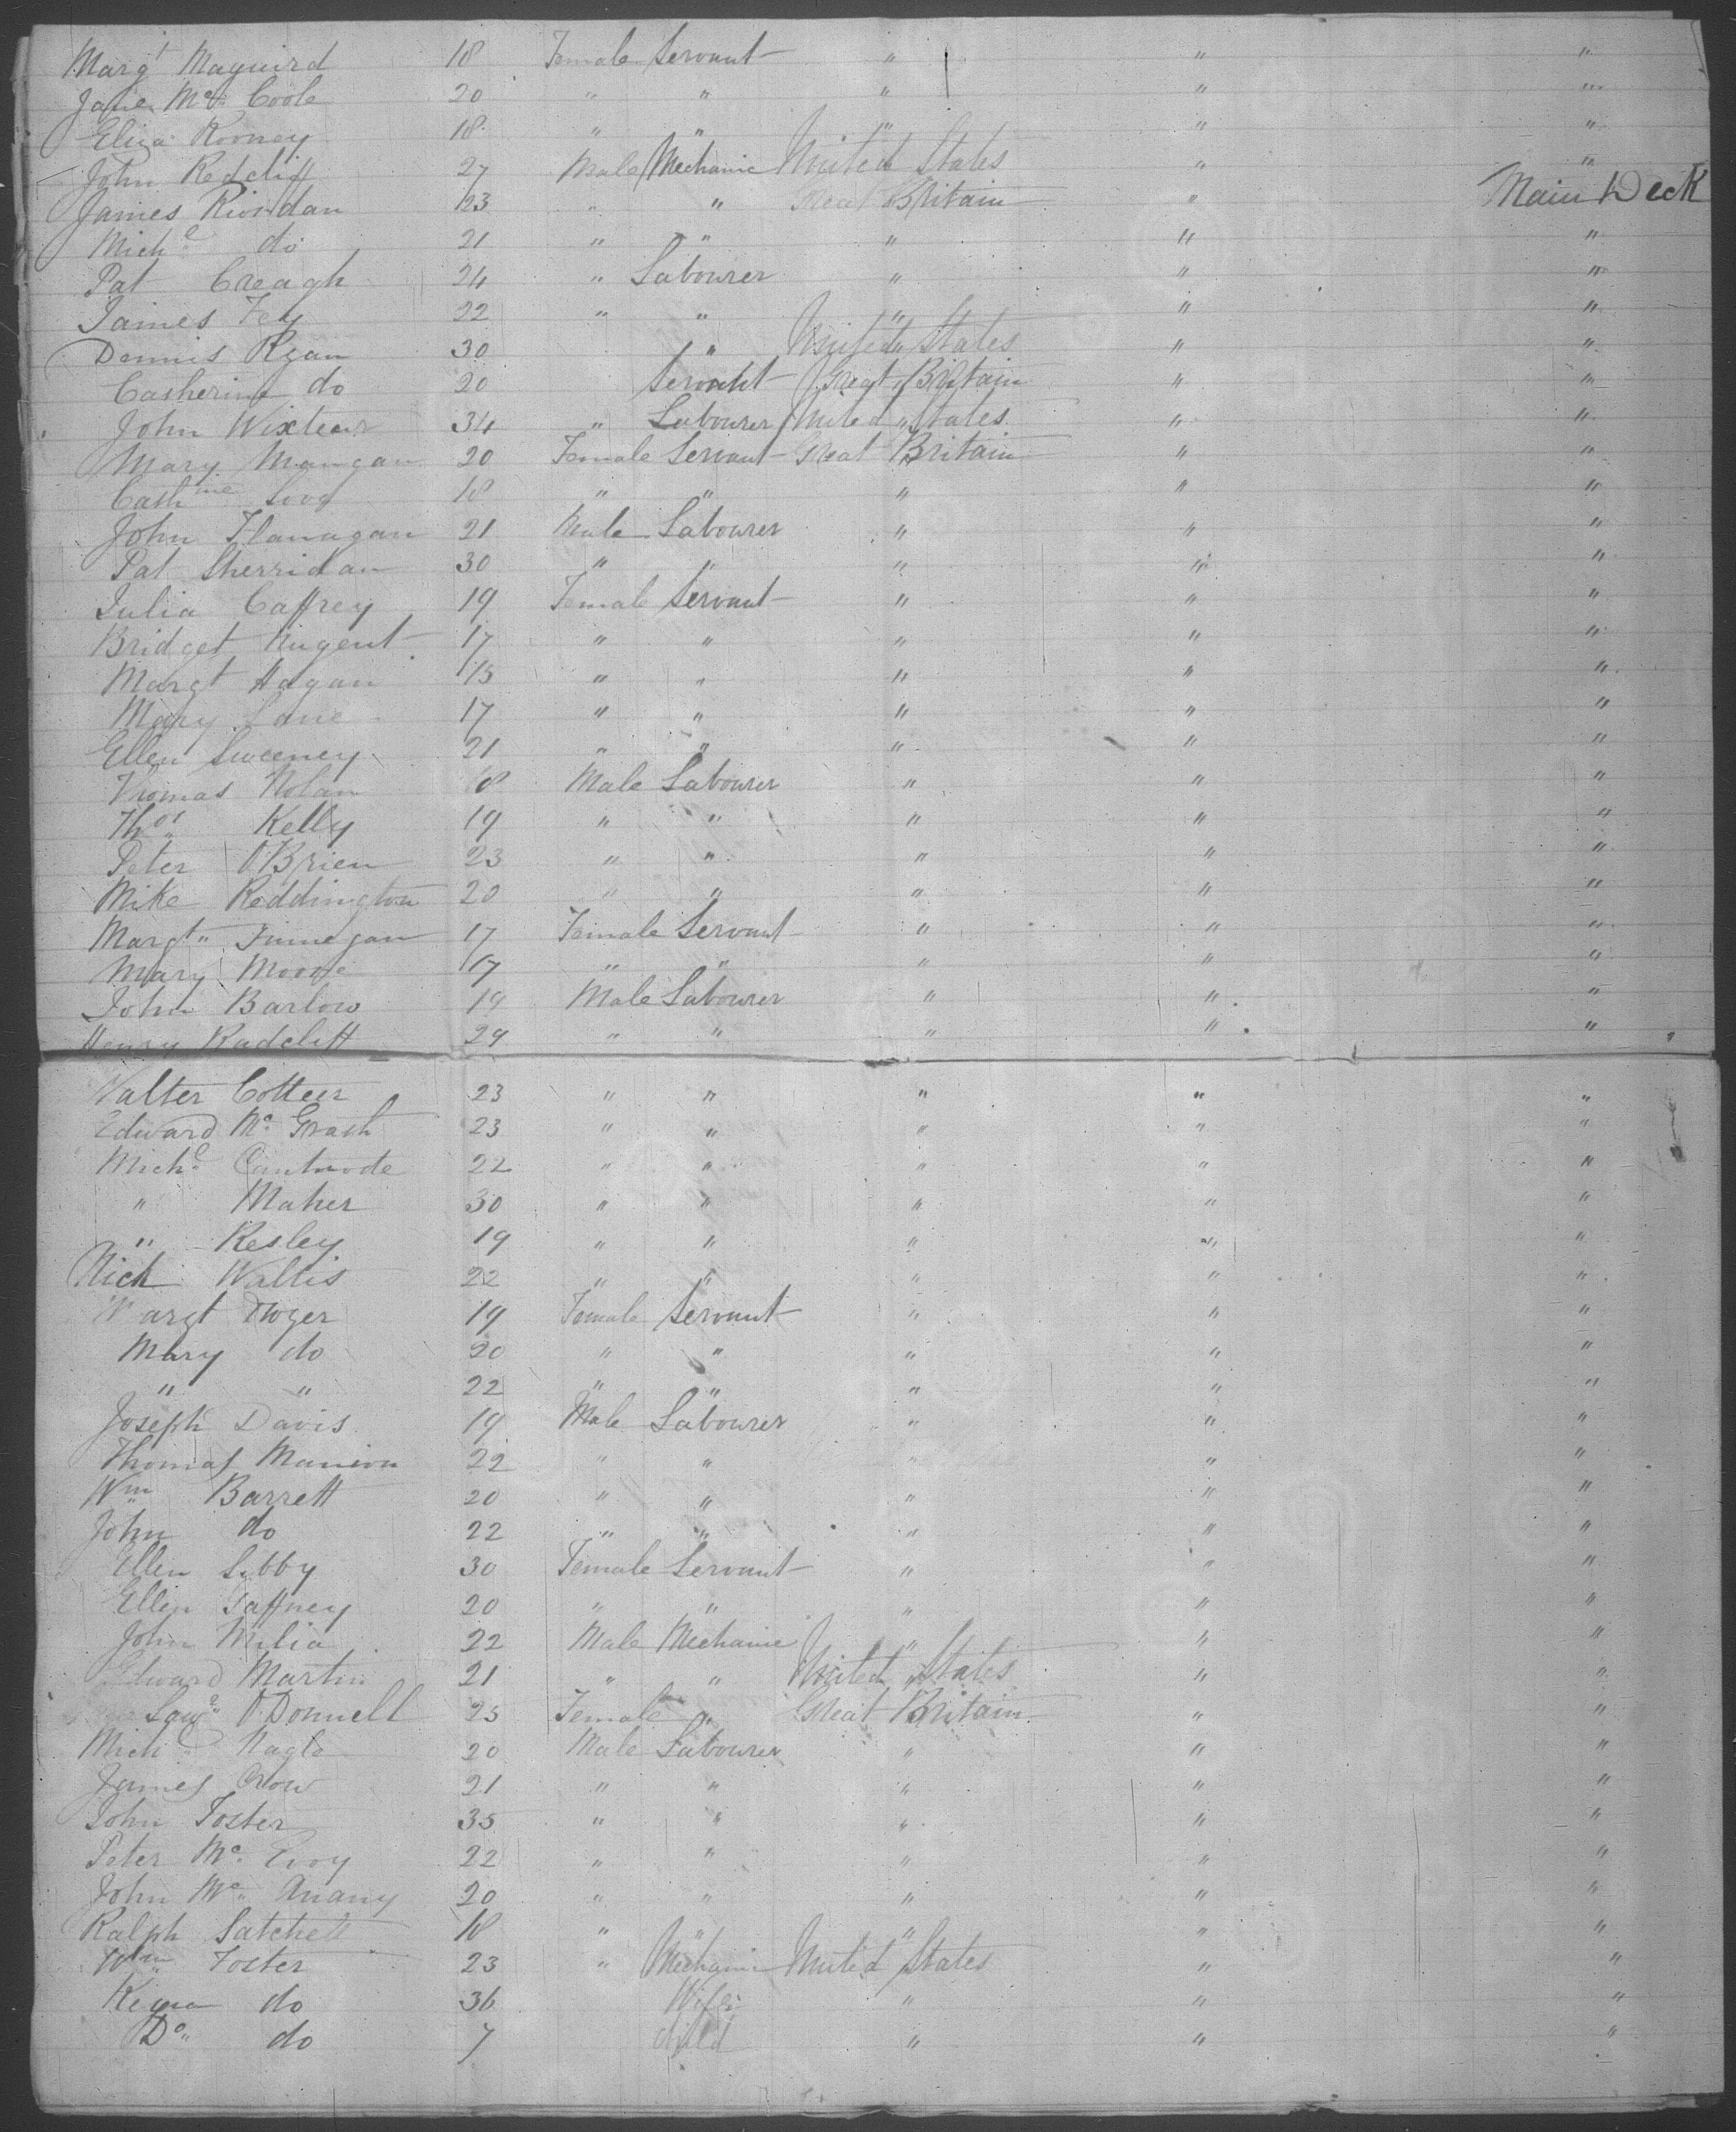 Margt Maguird 18 Female Servant " " "
Jane Mc Coole 20 " " " " "
Eliza Rooney 18 " " " " "
John Redcliff 27 Male Mechanic United States " "
James Riordan 23 " " Great Britain " Main Deck
Michl do 21 " " " " "
Pat Creagh 24 " Labourer " " "
James Fey 22 " " " " "
Dennis Ryan 30 " United States " "
Catherine do 20 Servant Great Britain " "
John 34 " Labourer United States " "
Mary Mangan 20 Female Servant Great Britain " "
Cathine 18 " " " " "
John Flanagan 21 Male Labourer " " "
Pat Sherridan 30 " " " " "
Julia Caffrey 19 Female Servant " " "
Bridget Nugent 17 " " " " "
Margt Hagan " " " " "
Mary Lane 17 " " " " "
Ellen Sweeney 21 " " " " "
Thomas Nolan 18 Male Labourer " " "
Thos Kelly 19 " " " " "
Peter O'Brien 23 " " " " "
Mike Reddington 20 " " " " "
Margt Finnegan 17 Female Servant " " "
Mary Moore 17 " " " " "
John Barlow 19 Male Labourer " " "
Henry Radcliff 29 " " " " "
Walter Cotteer 23 " " " " "
Edward Mc Grath 23 " " " " "
Michl 22 " " " " "
" Maher 30 " " " " "
" Kesley 19 " " " " "
Nich Wallis 22 " " " " "
Margt Dwyer 19 Female Servant " " "
Mary do 20 " " " " "
" " 22 " " " " "
Joseph Davis 19 Male Labourer " " "
Thomas Mannion 22 " " " " "
Wm Barrett 20 " " " " "
John do 22 " " " " "
Ellen Libby 30 Female Servant " " "
Ellen Gaffney 20 " " " " "
John 22 Male Mechanic " " "
Edward Martin 21 " " United States " "
O'Donnell 25 Female " Great Britain " "
Michl Nagle 20 Male Labourer " " "
James Crow 21 " " " " "
John Foster 35 " " " " "
Peter Mc Evoy 22 " " " " "
John Mc Anany 20 " " " " "
Ralph Satchell 18 " " " " "
Wm Foster 23 " Mechanic United States " "
do 36 Wife " " "
Do do 7 child " " "